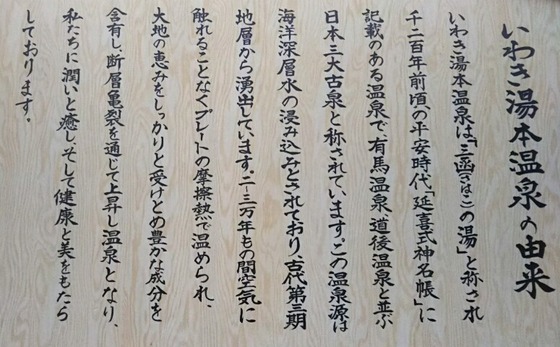 いわき湯本温泉の由来
いわき湯本温泉は、「三函(さはこ)の湯」と称され
千二百年前頃の平安時代「延喜式神名帳」に
記載のある温泉で、有馬温泉、道後温泉と並ぶ
日本三大古泉と称されています。この温泉源は
海洋深層水の浸み込みとされており、古代第三期
地層から湧出しています。二~三万年もの間空気に
触れることなくプレートの摩擦熱で温められ、
大地の恵みをしっかりと受けとめ豊かな成分を
含有し、断層亀裂を通じて上昇し温泉となり、
私たちに潤いと癒し、そして健康と美をもたら
しております。